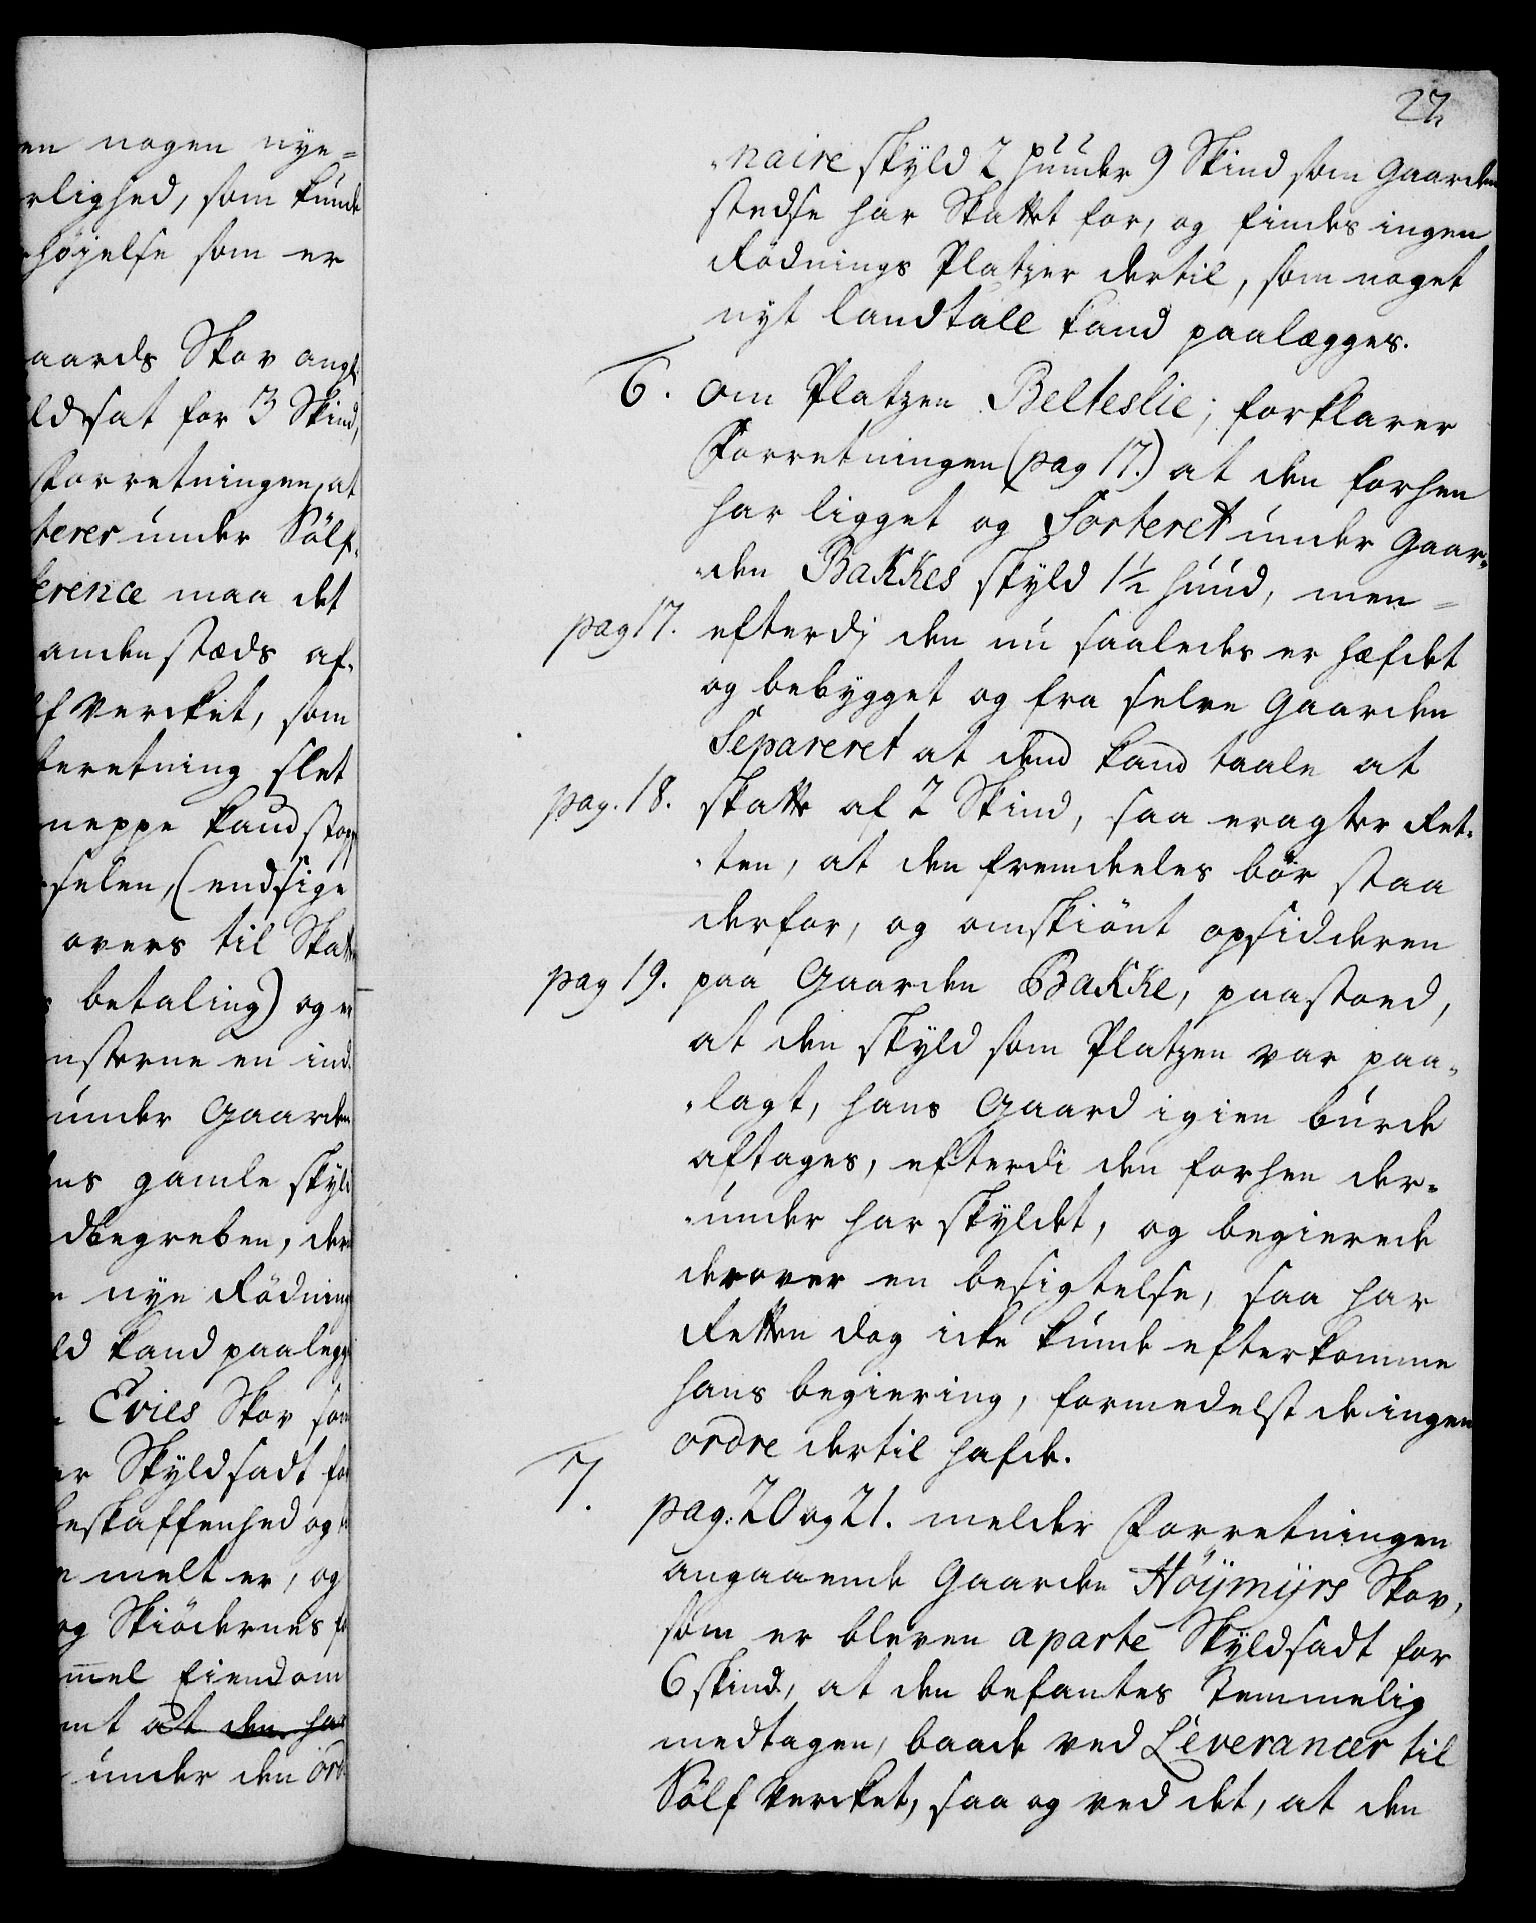 en nogen nye=
rlighed, som kunde
høyelse som er
aards Skov angl:
ldsat for 3 Skind,
forretningen, at
terer under Sölf-
ference maa det
andenstæds af-
lf Vercket, som
beretning slet
neppe kand
selen, (endsige
overs til Skatte
betaling) og
nsterne en ind
under Gaarden
ns gamle skyld
dbegreben, der
nye Rödning
ld kand paalegg
Evies Skov som
er Skyldsadt for
beskaffenhed og
melt er, og
og Skiödernes
mel Eiendom
mt at den har
under den ord
22.
„naire skyld 2 huuder 9 Skind som Gaarden
stedse har Skattet for, og findes ingen
Rödnings Platzer dertil, som noget
nyt landtale kand paalægges.
6. Om Platzen Belteslie; forklarer
Forretningen (pag 17.) at den forhen
har ligget og Sorteret under Gaar-
„den Bakkes skyld 1½ huud, men =
pag 17. efterdi den nu saaledes er hæfdet
og bebygget og fra selve Gaarden
Separeret at dend kand taale at
pag. 18. skatte af 2 Skind, saa eragter Ret-
„ten, at den fremdeeles bör staa
derfor, og omskiönt opsidderen
pag 19. paa Gaarden Bakke, paastoed,
at den skyld som Platzen var paa-
„lagt, hans Gaard igien burde
aftages, efterdi den forhen der-
„under har skyldet, og begierede
derover en besigtelse, saa har
Retten dog icke kunde efterkomme
hans begiering, formedelst de ingen
ordre dertil hafde.
7. pag: 20 og 21. melder Forretningen
angaaende Gaarden Höymyrs Skov,
som er bleven aparte Skyldsadt for
6 skind, at den befantes temmelig
medtagen, baade ved Leverancer til
Sölf Vercket, saa og ved det, at den